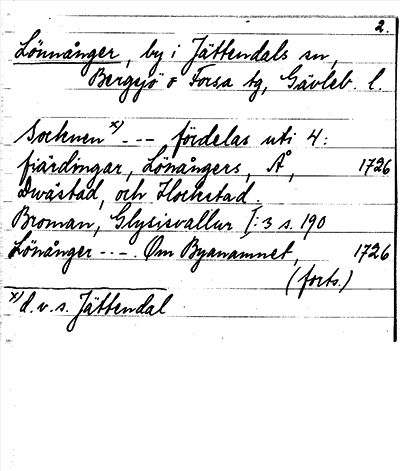 2.
Lönnånger, by i Jättendals sn,
Bergsjö o Forsa tg, Gävleb. l.
Socknen x) --- fördelas uti 4:
fjärdingar, Lönångers, Å, 1726
Dwästad, och Hockstad.
Broman, Glysisvallur I:3 s. 190
Lönånger ---. Om Byanamnet, 1726
(forts.)
x) d.v.s. Jättendal